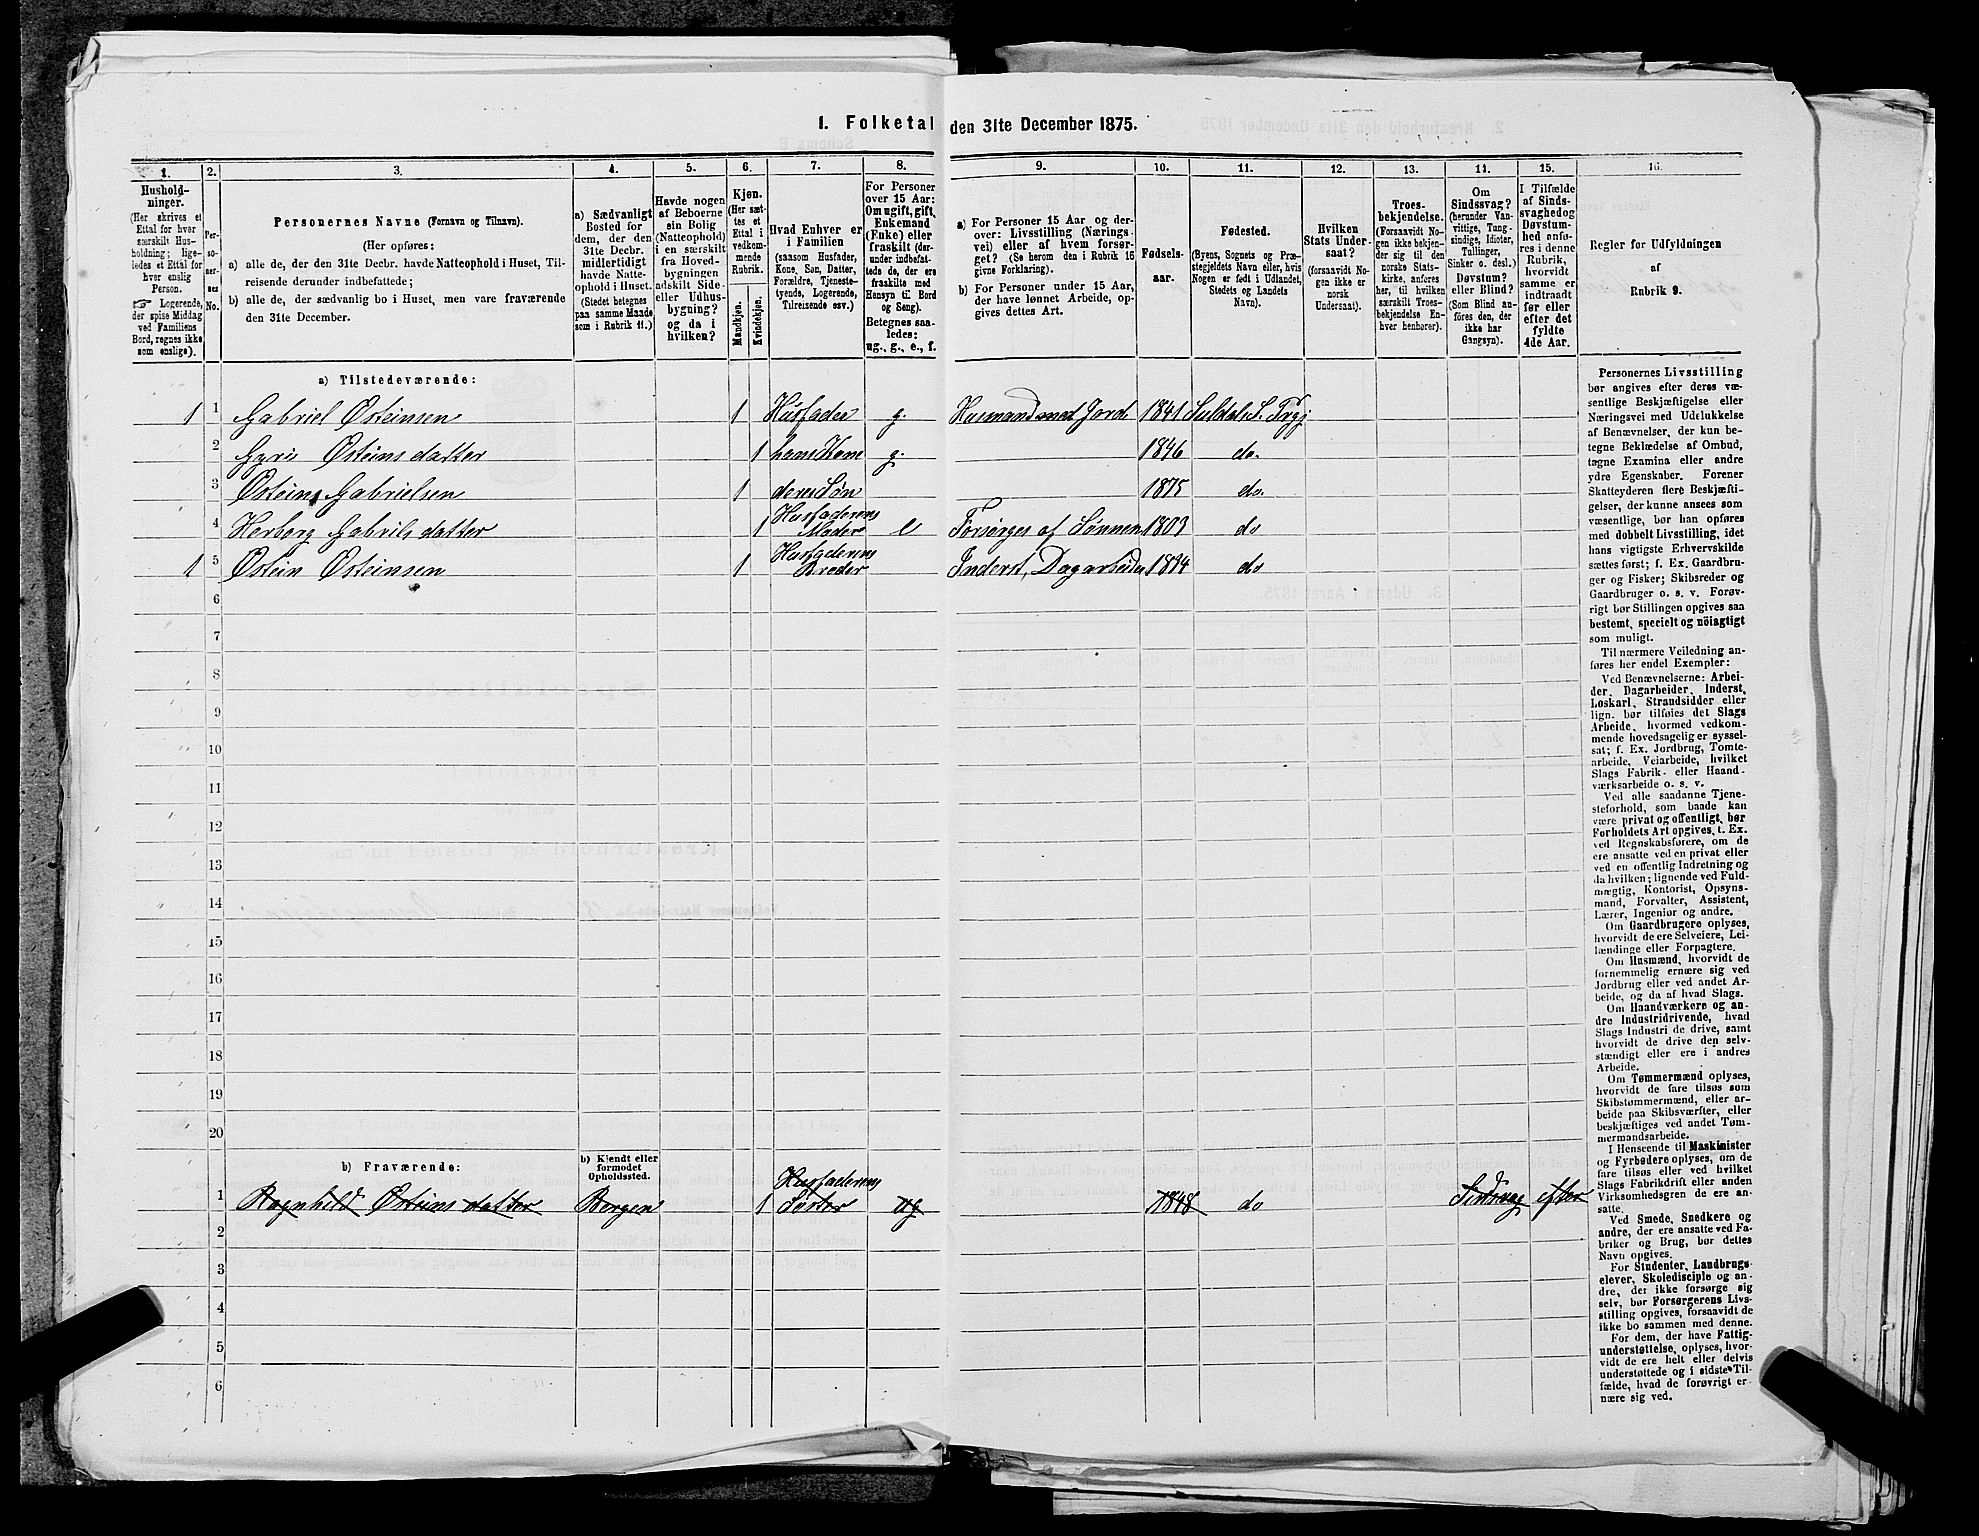 1. Folketal den 31te December 1875.
1. 2. 3. 4. 5. 6. 7. 8. 9. 10. 11. 12. 13. 14. 15. 16.
Hushold-
ninger.
(Her skrives et
Ettal for hver
særskilt Hus-
holdning; lige-
ledes et Ettal for
hver enslig
Person.
☞ Logerende,
der spise Middag
ved Familiens
Bord, regnes ikke
som enslige).
Per-
so-
ner-
nes
No.
Personernes Navne (Fornavn og Tilnavn).
(Her opføres:
a) alle de, der den 31te Decbr. havde Natteophold i Huset, Til-
reisende derunder indbefattede;
b) alle de, der sædvanlig bo i Huset, men vare fraværende
den 31te December.
a) Sædvanligt
Bosted for
dem, der den
31te Decbr.
midlertidigt
havde Natte-
ophold i Huset.
(Stedet betegnes
paa samme Maade
som i Rubrik 11.)
Havde nogen
af Beboerne
sin Bolig
(Natteophold)
i en særskilt
fra Hoved-
bygningen
adskilt Side-
eller Udhus-
bygning?
og da i
hvilken?
Kjøn.
(Her sæt-
tes et
Ettal i
vedkom-
mende
Rubrik.
Mandkjøn.
Kvindekjøn.
Hvad Enhver er
i Familien
(saasom Husfader,
Kone, Søn, Datter,
Forældre, Tjeneste-
tyende, Logerende,
Tilreisende osv.)
For Personer
over 15 Aar:
Om ugift, gift,
Enkemand
(Enke) eller
fraskilt (der-
under indbefat-
tede de, der ere
fraskilte med
Hensyn til Bord
og Seng).
Betegnes saa-
ledes:
ug., g., e., f.
a) For Personer 15 Aar og der-
over: Livsstilling (Nærings-
vei) eller af hvem forsør-
get? (Se herom den i Rubrik 16
givne Forklaring).
b) For Personer under 15 Aar,
der have lønnet Arbeide, op-
gives dettes Art.
Fødsels-
aar.
Fødested.
(Byens, Sognets og Præ-
stegjeldets Navn eller, hvis
Nogen er født i Udlandet,
Stedets og Landets
Navn).
Hvilken
Stats Under-
saat?
(forsaavidt No-
gen ikke er
norsk
Undersaat).
Troes-
bekjendelse.
(Forsaavidt No-
gen ikke bekjen-
der sig til den
norske Stats-
kirke, anføres
her, til hvilken
særskilt Troes-
bekjendelse En-
hver henhører).
Om
Sindssvag?
(herunder Van-
vittige, Tung-
sindige, Idioter,
Tullinger,
Sinker o. desl.)
Døvstum?
eller Blind?
(Som Blind an-
føres den, der
ikke har
Gangsyn).
I Tilfælde
af Sinds-
svaghed og
Døvstum-
hed anfø-
res i denne
Rubrik,
hvorvidt
samme er
indtraadt
før eller
efter det
fyldte
4de Aar.
Regler for Udfyldningen
af
Rubrik 9.
a) Tilstedeværende:
1 1 Gabriel Østeinsen 1 Husfader g. Husmand med Jord 1841 Suldals S.
2 Gyri Østeinsdatter 1 hans Kone g. 1846 do.
3 Østein Gabrielsen 1 deres Søn 1875 do.
4 Herborg Gabrilsdatter 1 Husfaderens Moder e Forsørges af Sønnen 1803 do
1 5 Østein Østeinsen 1 Husfaderens Broder Inderst, Dagarbeider 1834 do
6
7
8
9
10
11
12
13
14
15
16
17
18
19
20
b) Fraværende:
b) Kjendt eller
formodet
Opholdssted.
1 Ragnhild Østeinsdatter Bergen 1 Husfaderens Søster ug 1848 do Sindsvag efter
2
3
4
5
6
Personernes Livsstilling
bør angives efter deres væ-
sentlige Beskjæftigelse eller
Næringsvei med Udelukkelse
af Benævnelser, der kun be-
tegne Beklædelse af Ombud,
tagne Examina eller andre
ydre Egenskaber. Forener
Skatteyderen flere Beskjæfti-
gelser, der kunne ansees som
væsentlige, bør han opføres
med dobbelt Livsstilling, idet
hans vigtigste Erhvervskilde
sættes først; f. Ex. Gaardbru-
ger og Fisker; Skibsreder og
Gaardbruger o. s. v. Forøv-
rigt bør Stillingen opgives saa
bestemt, specielt og nöiagtigt
som muligt.
Til nærmere Veiledning an-
føres her endel Exempler:
Ved Benævnelserne: Arbei-
der, Dagarbeider, Inderst,
Løskarl, Strandsidder eller
lign. bør tilføies det Slags
Arbeide, hvormed vedkom-
mende hovedsagelig er syssel-
sat; f. Ex. Jordbrug, Tomte-
arbeide, Veiarbeide, hvilket
Slags Fabrik- eller Haand-
værksarbeide o. s. v.
Ved alle saadanne Tjene-
steforhold, som baade kan
være privat og offentligt, bør
Forholdets Art opgives, t. Ex.
ved Regnskabsførere, om de
ere ansatte ved en privat eller
ved en offentlig Indretning og
da hvilken; lignende ved Fuld-
mægtig, Kontorist, Opsyns-
mand, Forvalter, Assistent,
Lærer, Ingeniør og andre.
Om Gaardbrugere oplyses,
hvorvidt de ere Selveiere, Lei-
lændinge eller Forpagtere.
Om Husmænd, hvorvidt de
fornemmelig ernære sig ved
Jordbrug eller ved andet Ar-
beide, og da af hvad Slags.
Om Haandværkere og an-
dre Industridrivende, hvad
Slags Industri de drive, samt
hvorvidt de drive den selv-
stændigt eller ere i andres
Arbeide.
Om Tømmermænd oplyses,
hvorvidt de fare tilsøs som
Skibstømmermænd, eller ar-
beide paa Skibsværfter, eller
beskjæftiges ved andet Tøm-
mermandsarbeide.
I Henseende til Maskinister
og Fyrbødere oplyses, om de
fare tilsøs eller ved hvilket
Slags Fabrikdrift eller anden
Virksomhedsgren de ere an-
satte.
Ved Smede, Snedkere og
andre, der ere ansatte ved Fa-
briker og Brug, bør dettes
Navn opgives.
For Studenter, Landbrugs-
elever, Skoledisciple og an-
dre, der ikke forsørge sig
selv, bør Forsørgerens Livs-
stilling opgives, forsaavidt de
ikke bo sammen med denne.
For dem, der have Fattig-
understøttelse, oplyses, hvor-
vidt de ere helt eller delvis
understøttede og i sidste Til-
fælde, hvad de forøvrigt er-
nære sig ved.